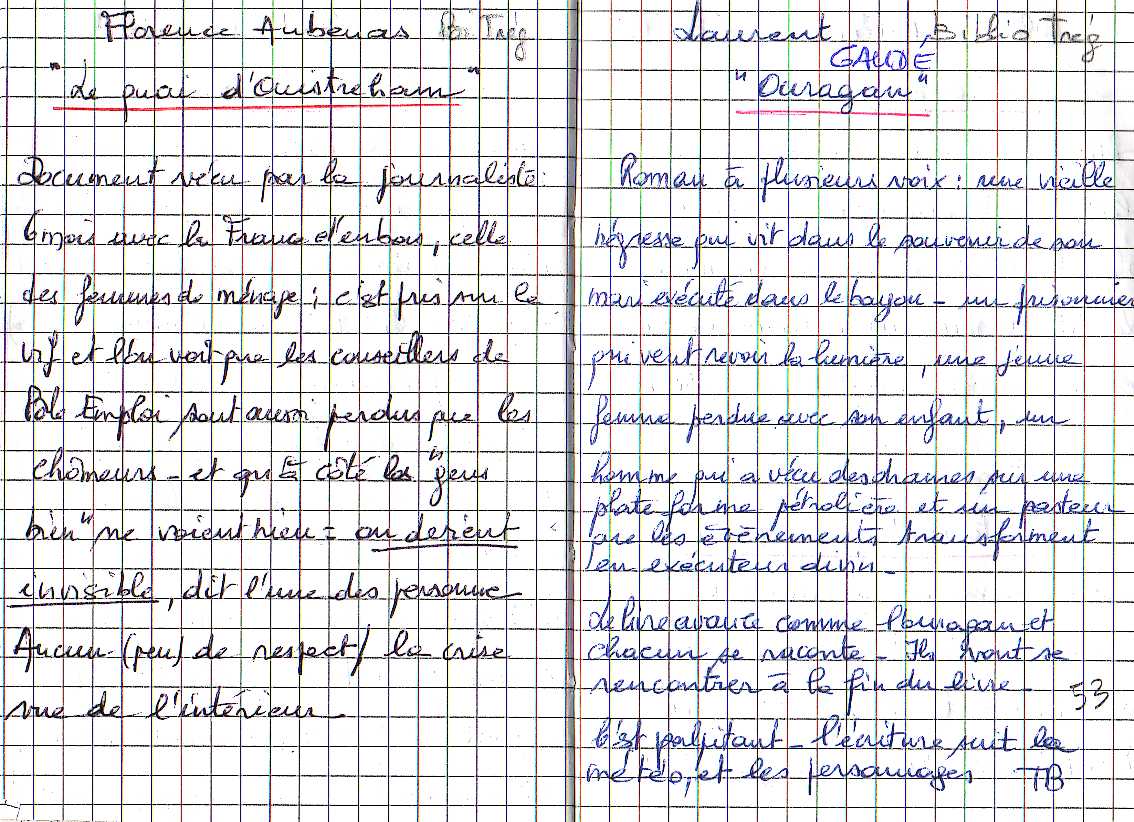 Florence Aubenas Bib Trég
"Le quai d'Ouistreham"
Document vécu par la journaliste
6 mois avec la France d'en bas, celle
des femmes de ménage ; c'est pris sur le
vif et l'on voit que les conseillers de
Pôle Emploi sont aussi perdus que les
chômeurs - et qu'à côté les "gens
bien" ne voient rien = on devient
invisible, dit l'une des personne
Aucun (peu) de respect / la crise
vue de l'intérieur
Laurent Biblio Trég
GAUDÉ
"Ouragan"
Roman à plusieurs voix : une vieille
négresse qui vit dans le souvenir de son
mari exécuté dans le bayou - un prisonnier
qui veut revoir la lumière, une jeune
femme perdue avec son enfant, un
homme qui a vécu des drames sur une
plateforme pétrolière et un pasteur
que les évènements transforment
en exécuteur divin -
Le livre avance comme l'ouragan et
chacun se raconte - Ils vont se
rencontrer à la fin du livre - 53
C'est palpitant - l'écriture suit la
météo, et les personnages TB